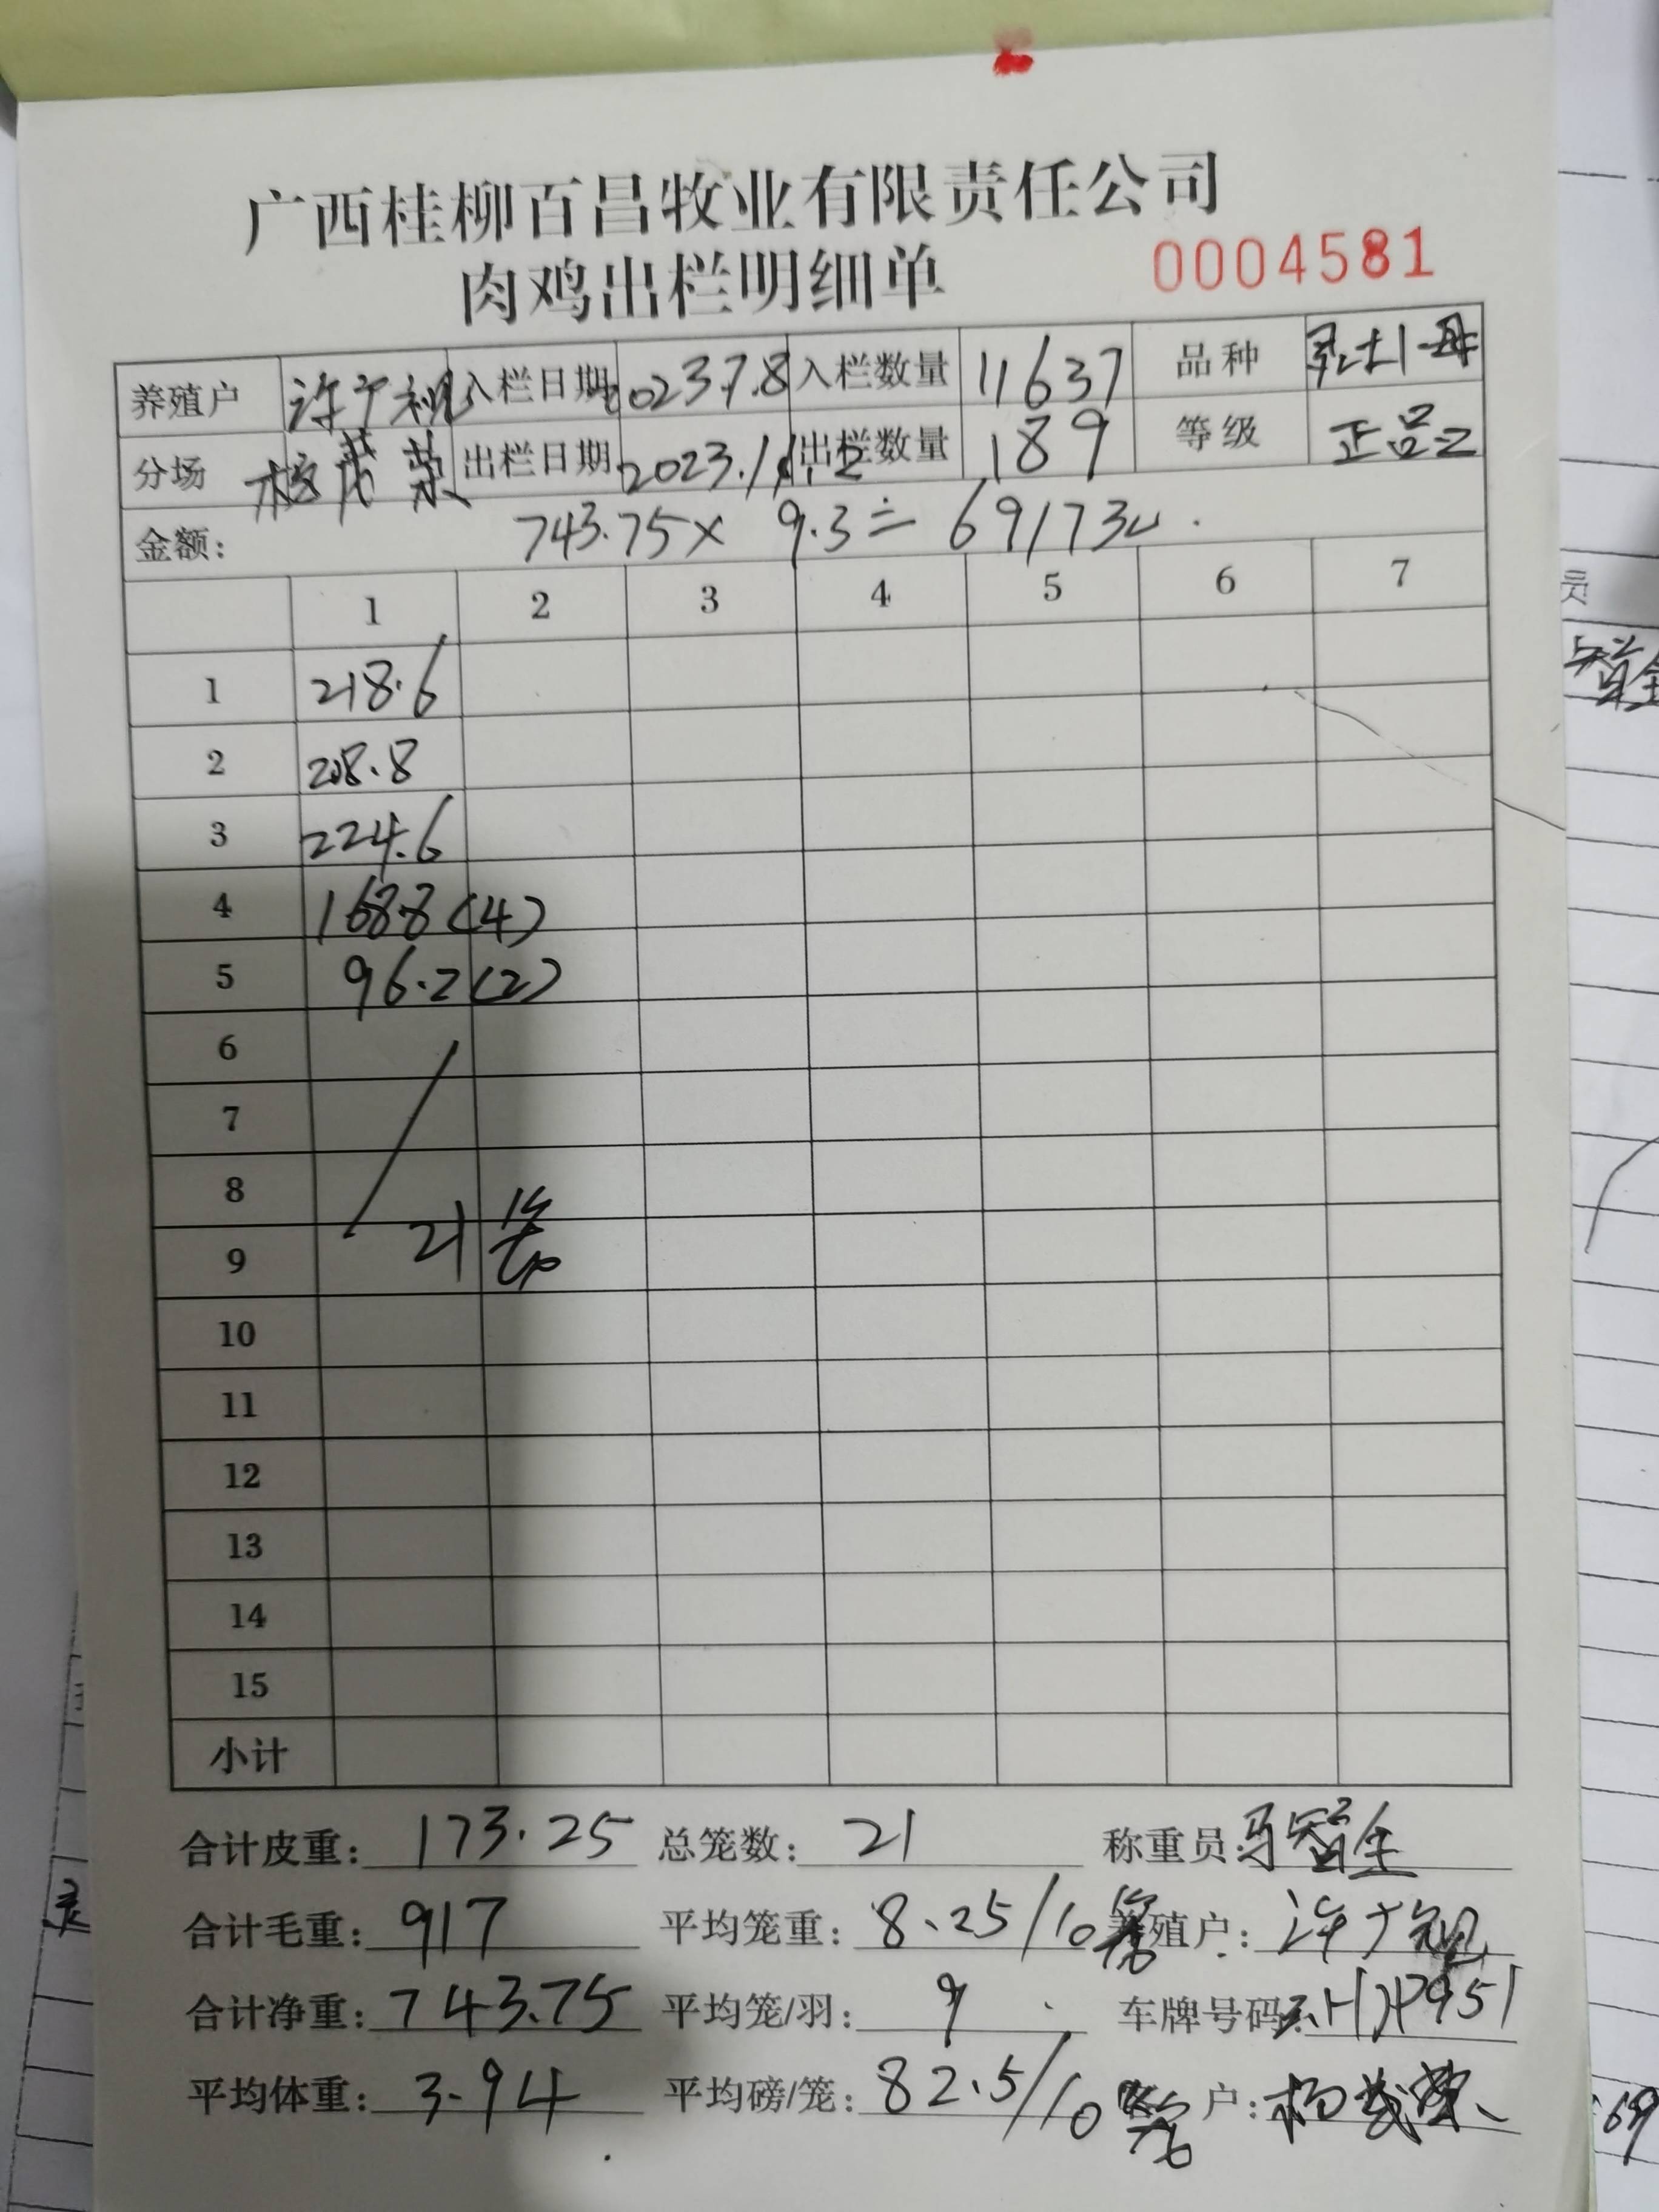 广西桂柳百昌牧业有限责任公司
肉鸡出栏明细单 0004581
养殖户 许广视 入栏日期 2023.7.8 入栏数量 11637 品种 土1母
分场 杨茂荣 出栏日期 2023.11.2 出栏数量 189 等级 正品2
金额: 743.75 × 9.3 ÷ 6917元.
1 2 3 4 5 6 7
1 218.6
2 208.8
3 224.6
4 168.8 (4)
5 96.2 (2)
6
7
8
9 21笼
10
11
12
13
14
15
小计
合计皮重: 173.25 总笼数: 21 称重员: 马智全
合计毛重: 917 平均笼重: 8.25/10笼 养殖户: 许广
合计净重: 743.75 平均笼/羽: 9 车牌号码:
平均体重: 3.94 平均磅/笼: 82.5/10笼 户: 杨茂荣